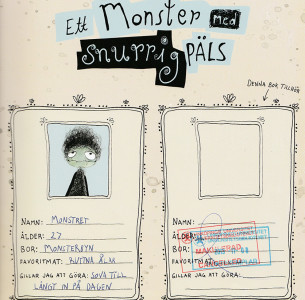 Ett Monster med
snurrig PÄLS
DENNA BOK TILLHÖR
NAMN: MONSTRET
ÅLDER: 27
BOR: MONSTERBYN
FAVORITMAT: RUTTNA ÄGG
GILLAR JAG ATT GÖRA: SOVA TILL
LÅNGT IN PÅ DAGEN
NAMN:
ÅLDER:
BOR:
FAVORITMAT:
GILLAR JAG ATT GÖRA: